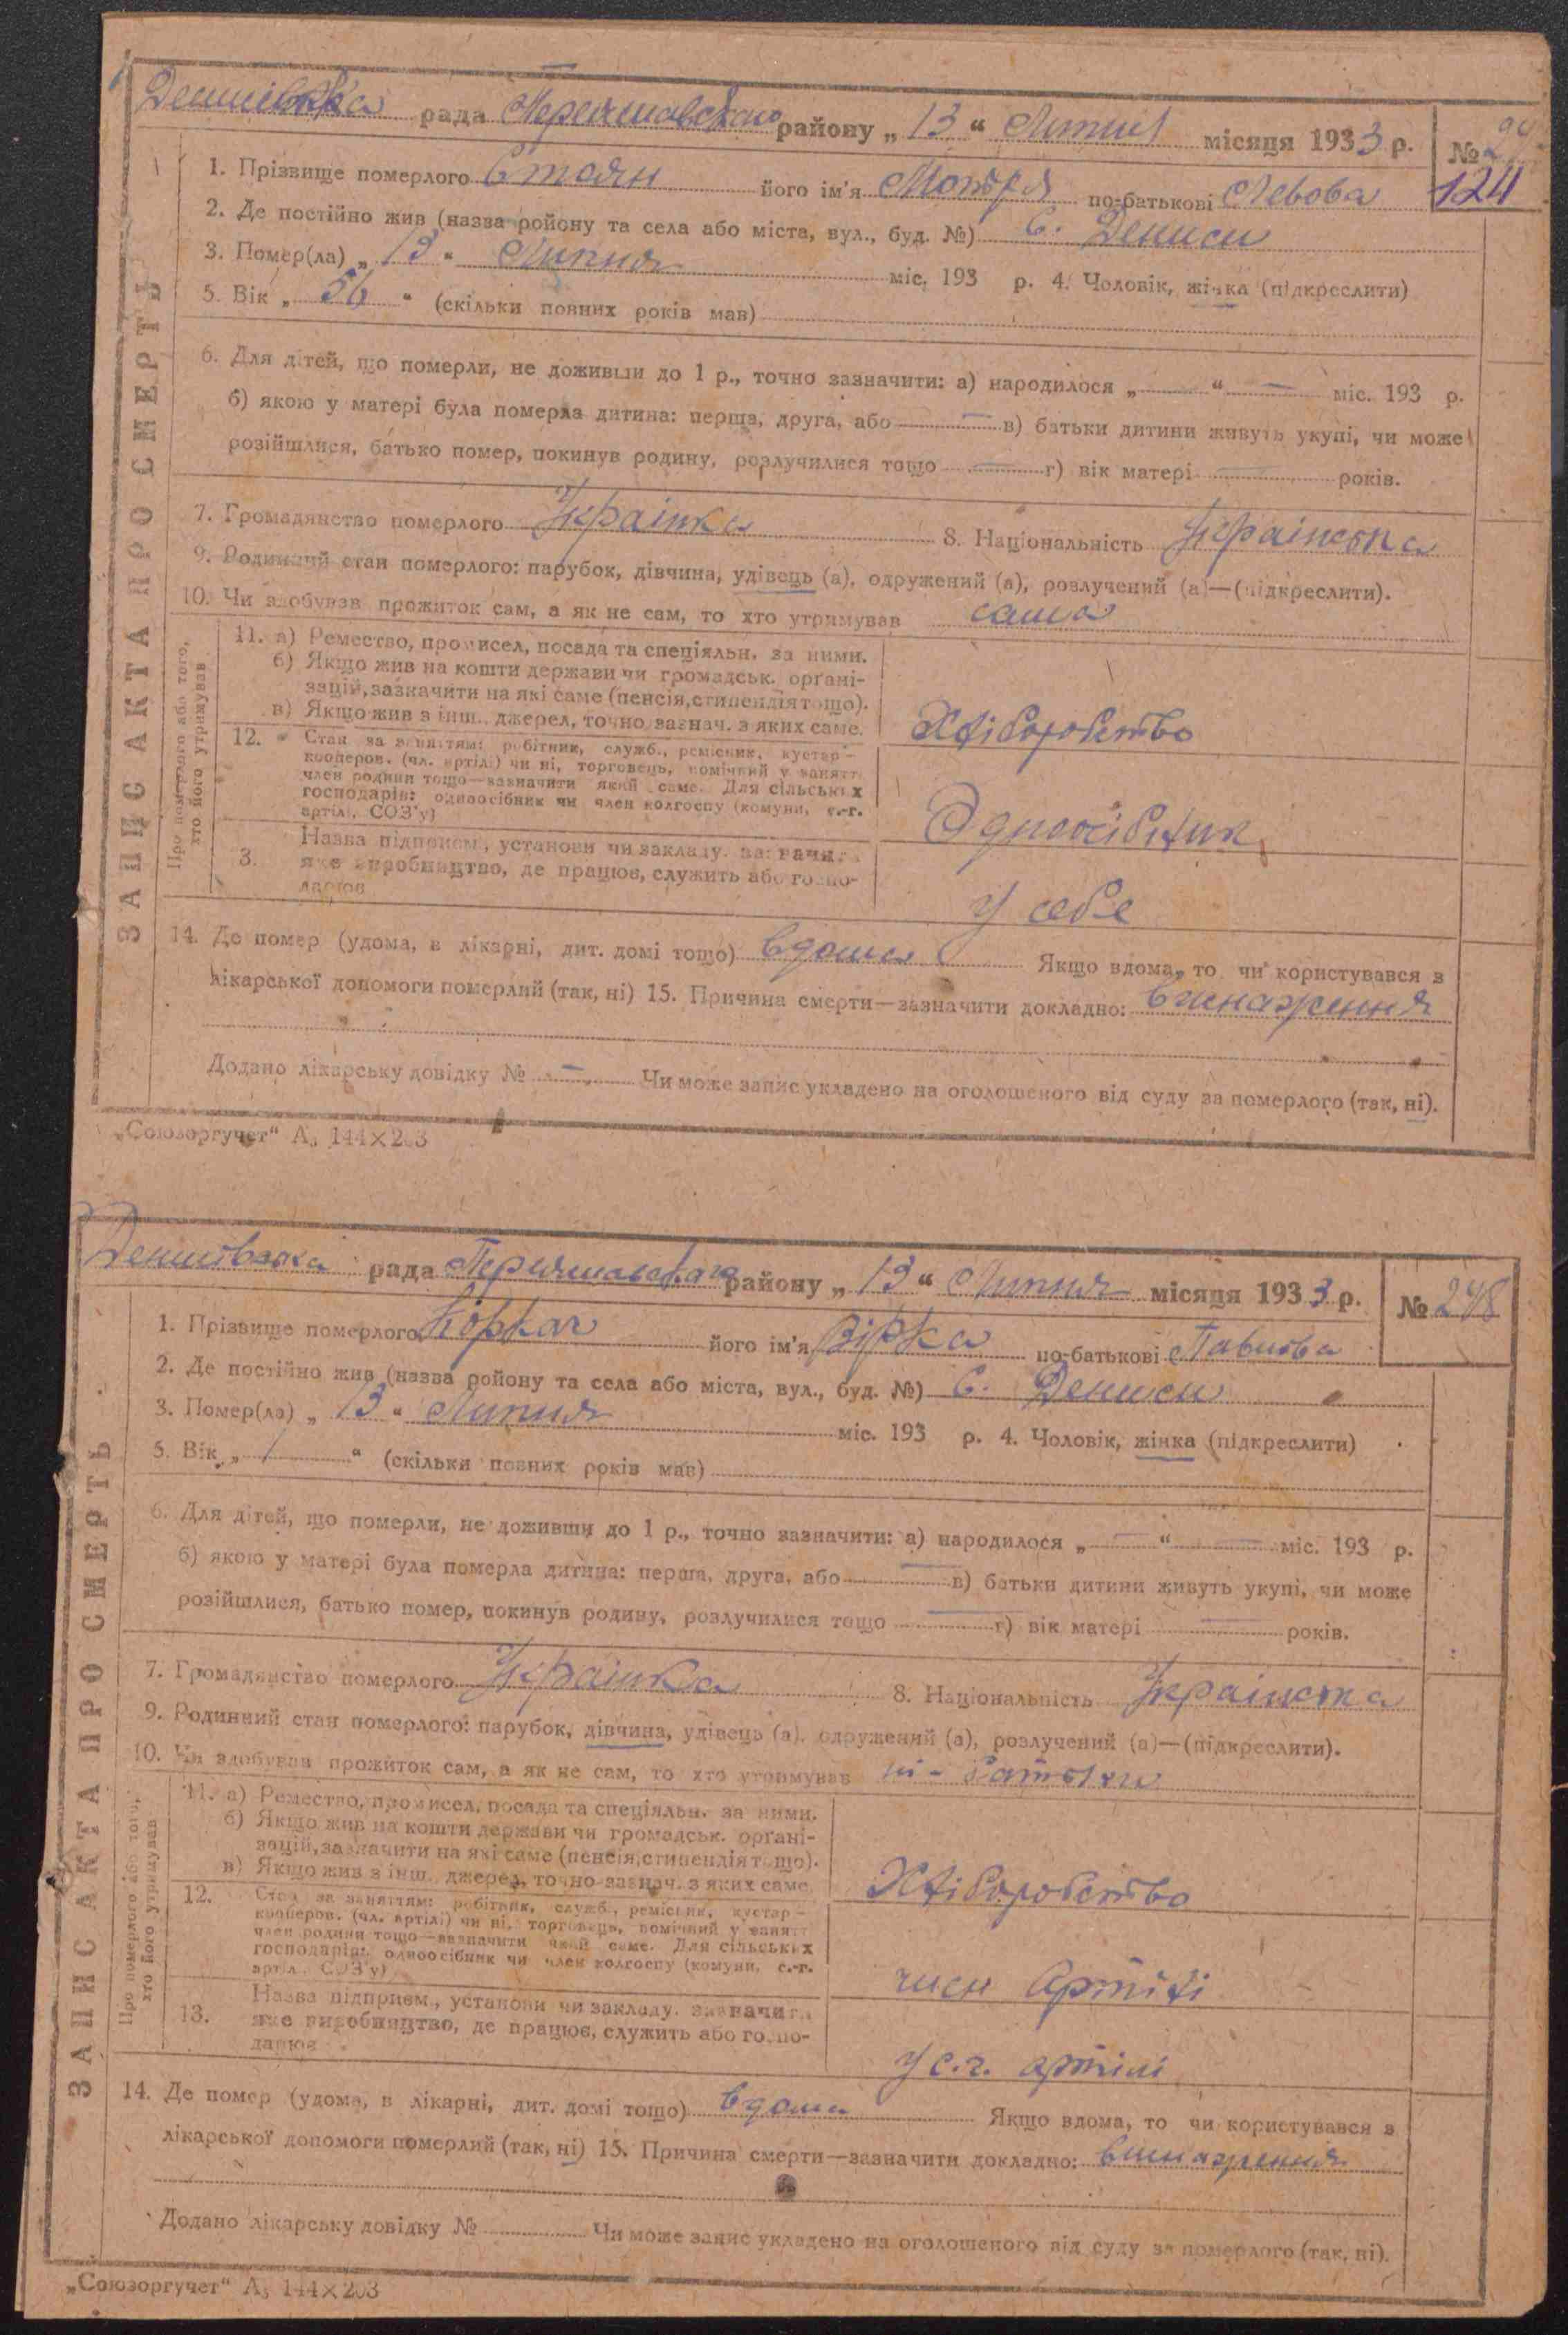 Денисівська рада Переяславського району „13“ Липня місяця 1933 р.
№
124
1. Прізвище померлого Стоян його ім'я Мотря по-батькові Левова
2. Де постійно жив (назва ройону та села або міста, вул., буд. №) С. Дениси
3. Помер(ла) „13“ Липня міс. 193 р. 4. Чоловік, жінка (підкреслити)
5. Вік „56“ (скільки повних років мав)
6. Для дітей, що померли, не доживши до 1 р., точно зазначити: а) народилося „—“ — міс. 193 р.
б) якою у матері була померла дитина: перша, друга, або — в) батьки дитини живуть укупі, чи може
розійшлися, батько помер, покинув родину, розлучилися тощо — г) вік матері — років.
7. Громадянство померлого Українка 8. Національність Українська
9. Родинний стан померлого: парубок, дівчина, удівець (а), одружений (а), розлучений (а)—(підкреслити).
10. Чи здобував прожиток сам, а як не сам, то хто утримував сама
ЗАПИС АКТА ПРО СМЕРТЬ
Про померлого або того,
хто його утримував
11. а) Ремество, промисел, посада та спеціяльн. за ними.
б) Якщо жив на кошти держави чи громадськ. орґані-
зацій, зазначити на які саме (пенсія, стипендія тощо).
в) Якщо жив з інш. джерел, точно зазнач. з яких саме.
Хліборобство
12. Стан за заняттям: робітник, служб., ремісник, кустар-
кооперов. (чл. артілі) чи ні, торговець, помічний у занятт
член родини тощо—зазначити який саме. Для сільських
господарів: одноосібник чи член колгоспу (комуни, с.-г.
артілі, СОЗ'у)
Одноосібник
3. Назва підприєм., установи чи закладу. зазначити
яке виробництво, де працює, служить або госпо-
дарює
У себе
14. Де помер (удома, в лікарні, дит. домі тощо) вдома Якщо вдома, то чи користувався з
лікарської допомоги померлий (так, ні) 15. Причина смерти—зазначити докладно: виснаження
Додано лікарську довідку № — Чи може запис укладено на оголошеного від суду за померлого (так, ні).
„Союзоргучет“ А₅ 144×203
Денисівська рада Переяславського району „13“ Липня місяця 1933 р.
№ 248
1. Прізвище померлого його ім'я Вірка по-батькові Павлова
2. Де постійно жив (назва ройону та села або міста, вул., буд. №) С. Дениси
3. Помер(ла) „13“ Липня міс. 193 р. 4. Чоловік, жінка (підкреслити)
5. Вік „1“ (скільки повних років мав)
6. Для дітей, що померли, не доживши до 1 р., точно зазначити: а) народилося „—“ — міс. 193 р.
б) якою у матері була померла дитина: перша, друга, або — в) батьки дитини живуть укупі, чи може
розійшлися, батько помер, покинув родину, розлучилися тощо — г) вік матері — років.
7. Громадянство померлого Українка 8. Національність Українська
9. Родинний стан померлого: парубок, дівчина, удівець (а), одружений (а), розлучений (а)—(підкреслити).
10. Чи здобував прожиток сам, а як не сам, то хто утримував ні - батьки
ЗАПИС АКТА ПРО СМЕРТЬ
Про померлого або того,
хто його утримував
11. а) Ремество, промисел, посада та спеціяльн. за ними.
б) Якщо жив на кошти держави чи громадськ. орґані-
зацій, зазначити на які саме (пенсія, стипендія тощо).
в) Якщо жив з інш. джерел, точно зазнач. з яких саме.
Хліборобство
12. Стан за заняттям: робітник, служб., ремісник, кустар-
кооперов. (чл. артілі) чи ні, торговець, помічний у занятт
член родини тощо—зазначити який саме. Для сільських
господарів: одноосібник чи член колгоспу (комуни, с.-г.
артілі, СОЗ'у)
член Артілі
13. Назва підприєм., установи чи закладу. зазначити
яке виробництво, де працює, служить або госпо-
дарює
У с.г. артілі
14. Де помер (удома, в лікарні, дит. домі тощо) вдома Якщо вдома, то чи користувався з
лікарської допомоги померлий (так, ні) 15. Причина смерти—зазначити докладно: виснаження
Додано лікарську довідку № Чи може запис укладено на оголошеного від суду за померлого (так, ні).
„Союзоргучет“ А₅ 144×203